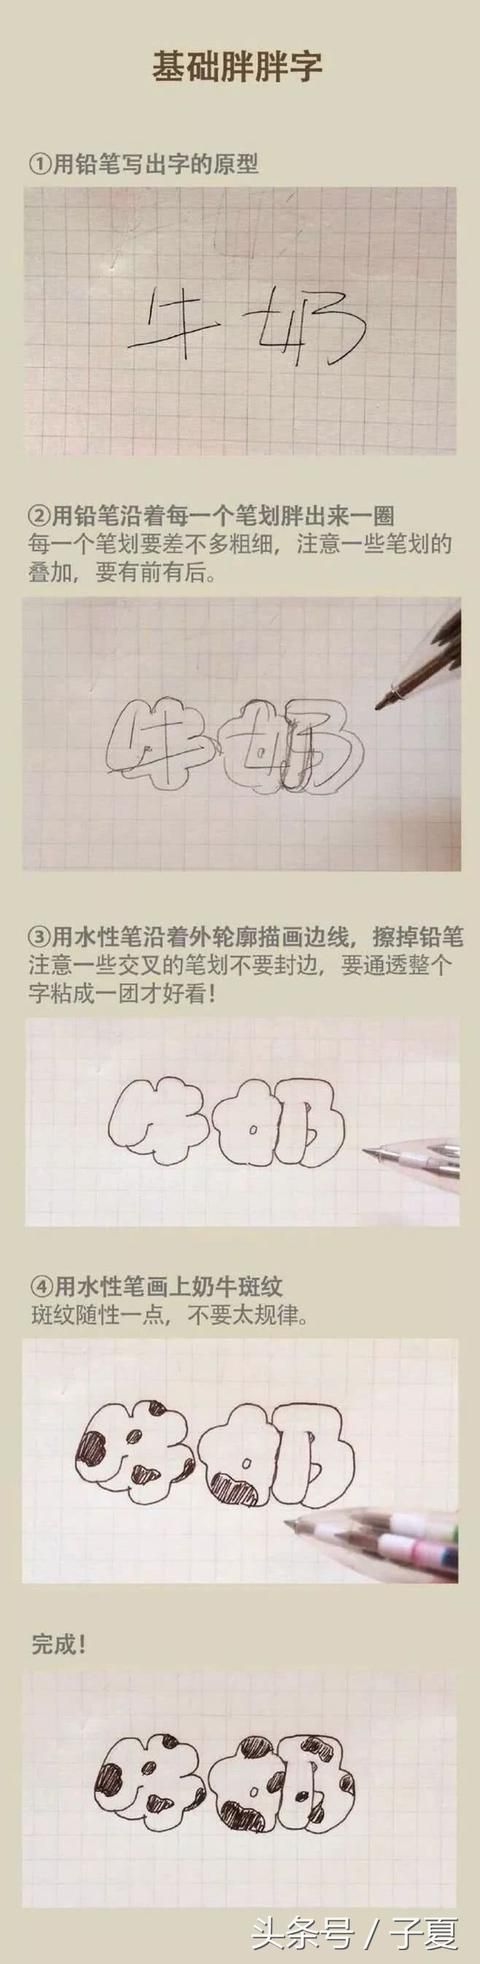 基础胖胖字
①用铅笔写出字的原型
牛奶
②用铅笔沿着每一个笔划胖出来一圈
每一个笔划要差不多粗细，注意一些笔划的
叠加，要有前有后。
牛奶
③用水性笔沿着外轮廓描画边线，擦掉铅笔
注意一些交叉的笔划不要封边，要通透整个
字粘成一团才好看！
牛奶
④用水性笔画上奶牛斑纹
斑纹随性一点，不要太规律。
牛奶
完成！
牛奶
头条号 / 子夏